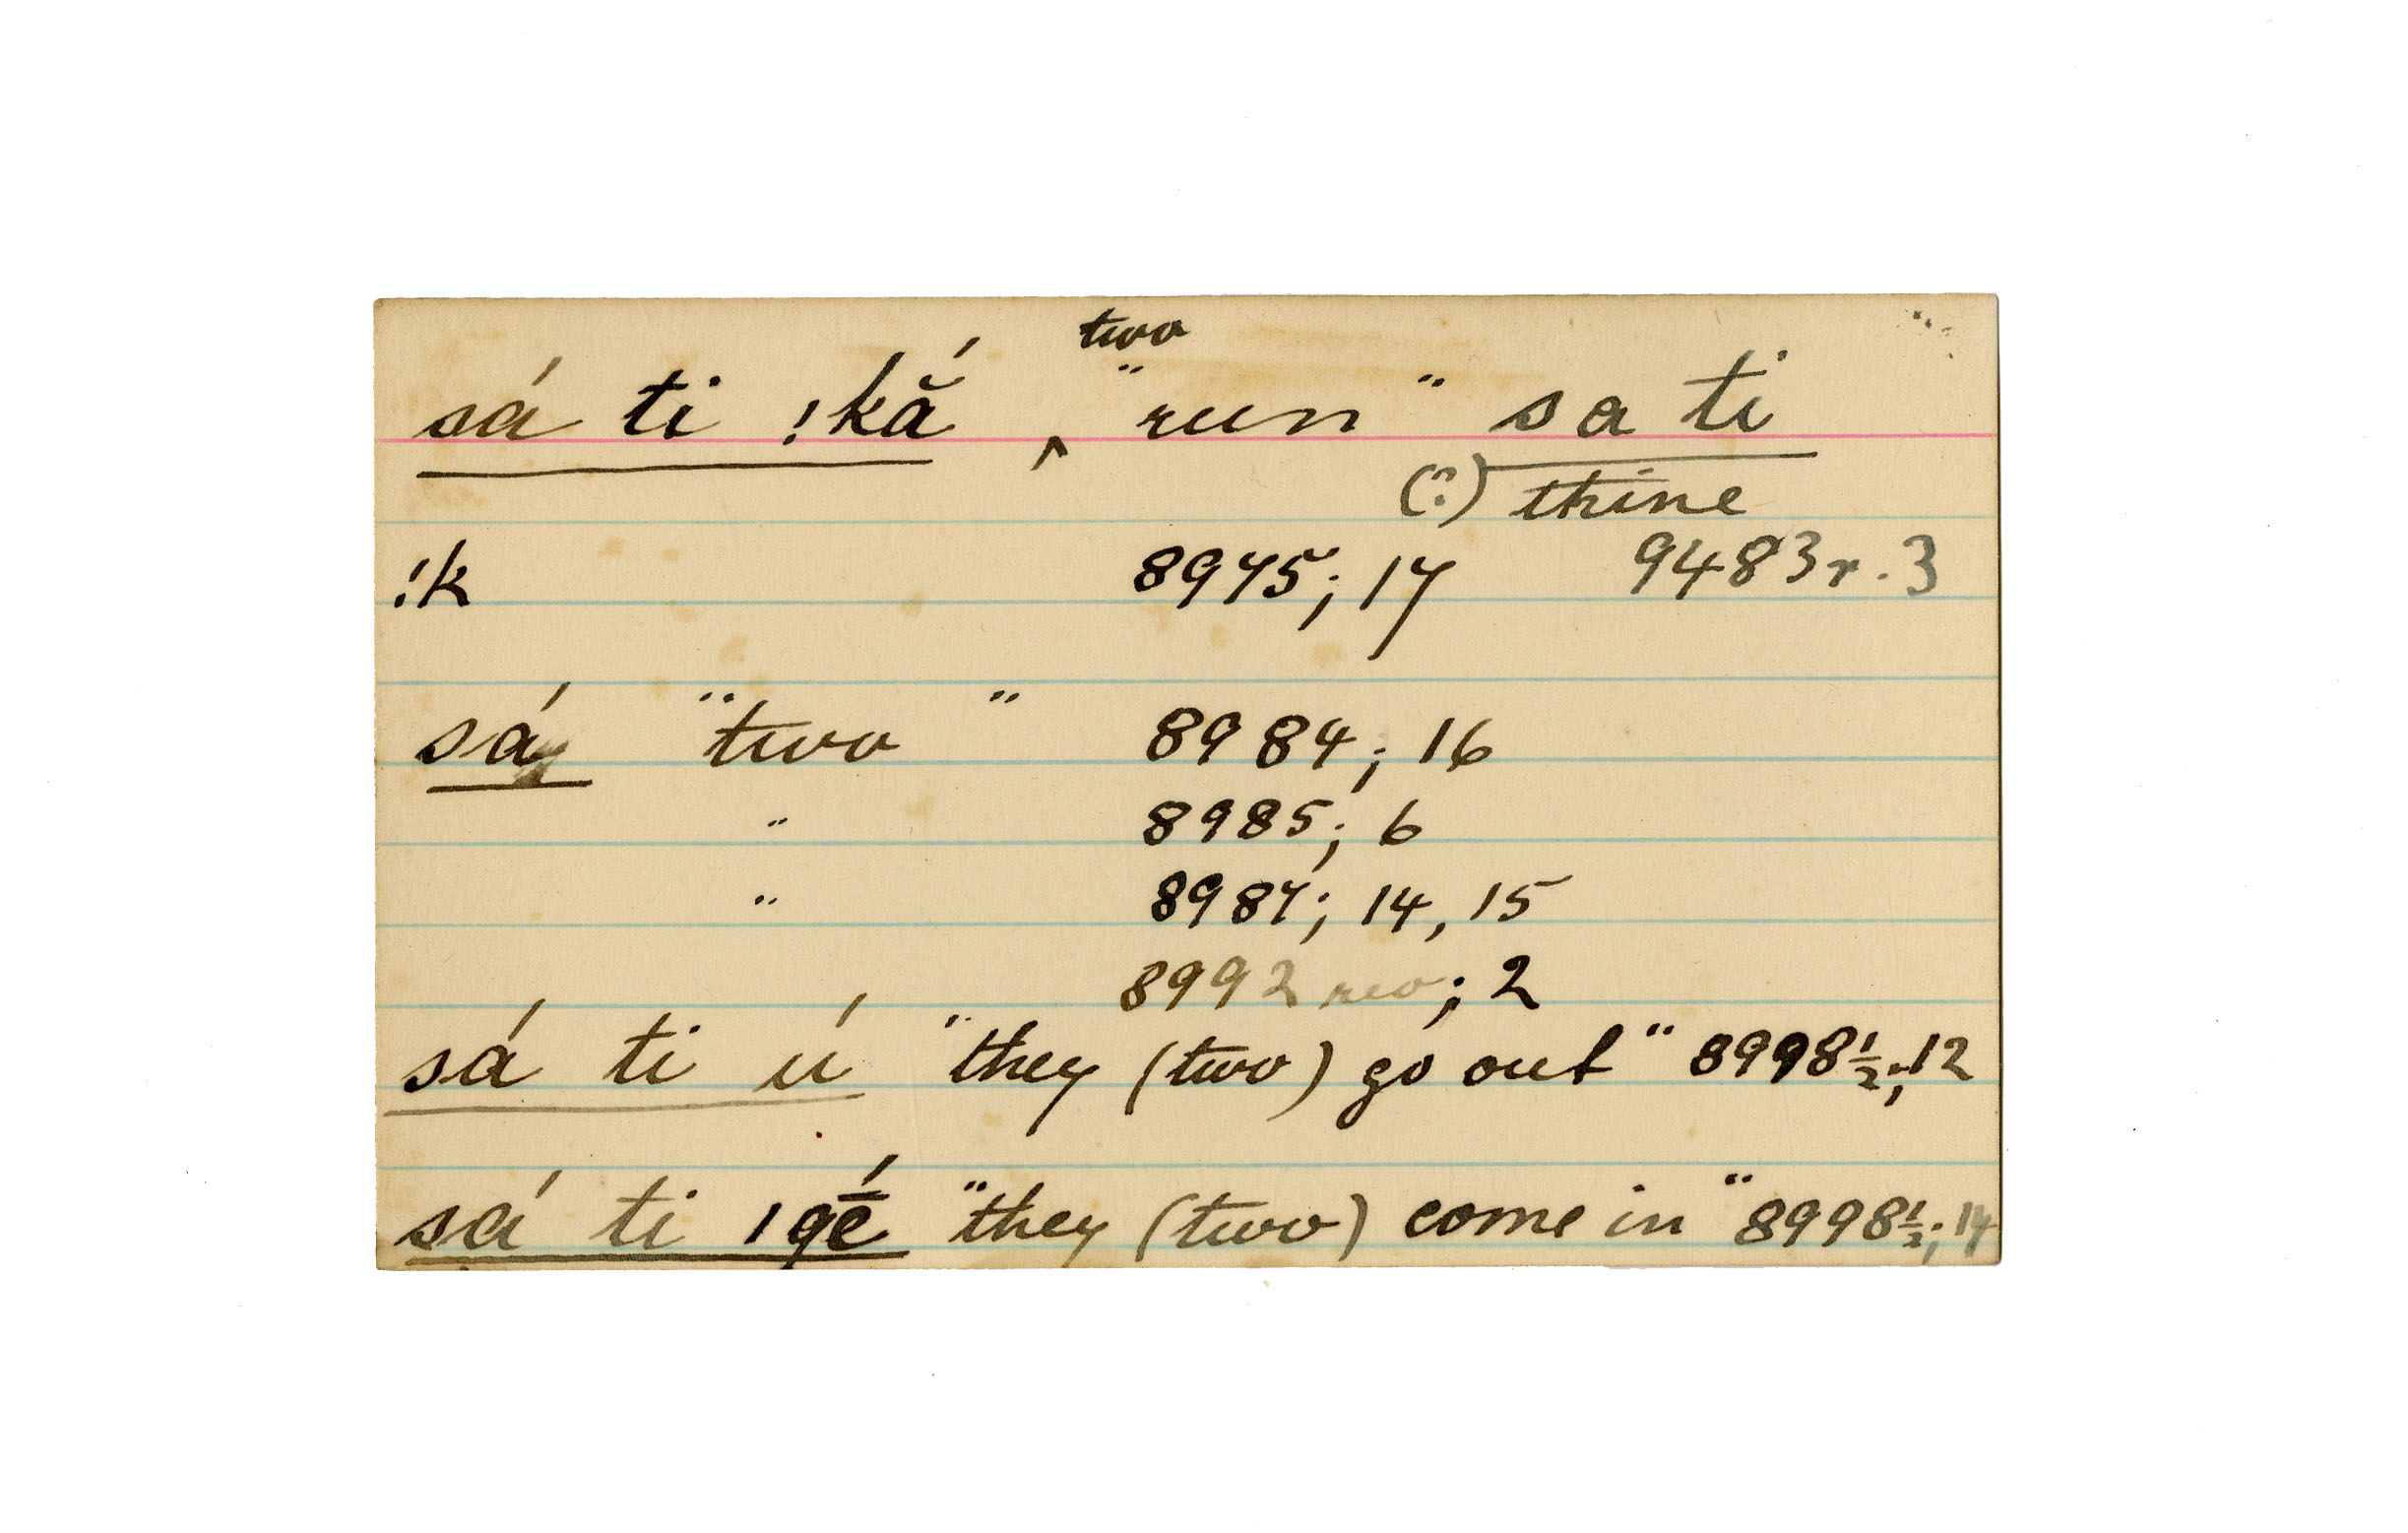 two
sá ti !kắ ‸ "run" sa ti
(?) thine
!k 8975; 17 9483r. 3
sá "two" 8984; 16
" 8985; 6
" 8987; 14, 15
8992 rev; 2
sá ti ú "they (two) go out" 8998½; 12
sá ti ǀgḗ "they (two) come in" 8998½; 14